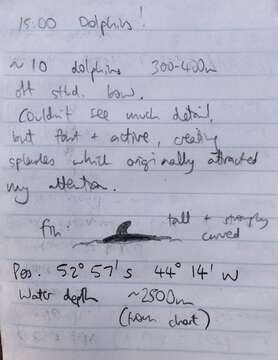 15:00 Dolphins!
~ 10 dolphins 300-400m
off stbd. bow.
Couldn't see much detail,
but fast + active, creating
splashes which originally attracted
my attention.
fin: tall + strongly
curved
Pos. 52° 57's 44° 14' W
Water depth ~2500m
(from chart)